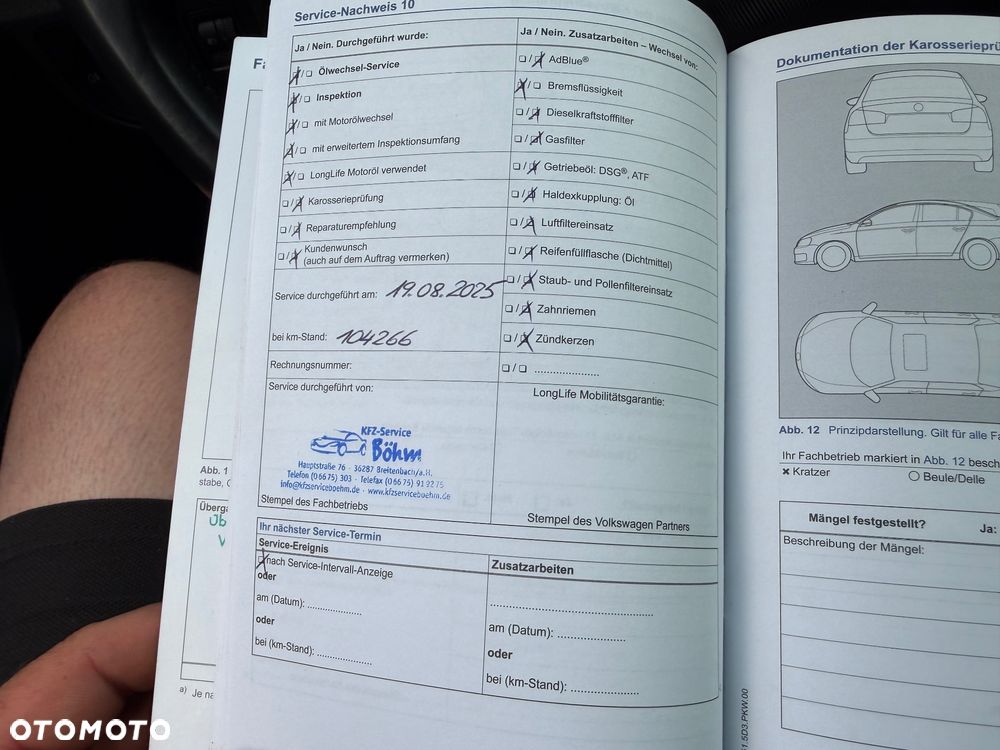 Service-Nachweis 10
Ja / Nein. Durchgeführt wurde:
Ölwechsel-Service
Inspektion
mit Motorölwechsel
mit erweitertem Inspektionsumfang
LongLife Motoröl verwendet
Karosserieprüfung
Reparaturempfehlung
Kundenwunsch
(auch auf dem Auftrag vermerken)
Service durchgeführt am: 19.08.2025
bei km-Stand: 104266
Rechnungsnummer:
Service durchgeführt von:
KFZ-Service
Böhm
Hauptstraße 76 · 36287 Breitenbach/a.H.
Telefon (06675) 303 · Telefax (06675) 919275
info@kfzserviceboehm.de · www.kfzserviceboehm.de
Stempel des Fachbetriebs
Ja / Nein. Zusatzarbeiten – Wechsel von:
AdBlue®
Bremsflüssigkeit
Dieselkraftstofffilter
Gasfilter
Getriebeöl: DSG®, ATF
Haldexkupplung: Öl
Luftfiltereinsatz
Reifenfüllflasche (Dichtmittel)
Staub- und Pollenfiltereinsatz
Zahnriemen
Zündkerzen
LongLife Mobilitätsgarantie:
Stempel des Volkswagen Partners
Ihr nächster Service-Termin
Service-Ereignis
nach Service-Intervall-Anzeige
oder
am (Datum): ....................
oder
bei (km-Stand): ....................
Zusatzarbeiten
am (Datum): ....................
oder
bei (km-Stand): ....................
Dokumentation der Karosserieprü
Abb. 12 Prinzipdarstellung. Gilt für alle Fa
Ihr Fachbetrieb markiert in Abb. 12 besch
× Kratzer
○ Beule/Delle
Mängel festgestellt? Ja:
Beschreibung der Mängel:
Fa
Abb. 1
stabe, G
Überga
a) Je na
OTOMOTO